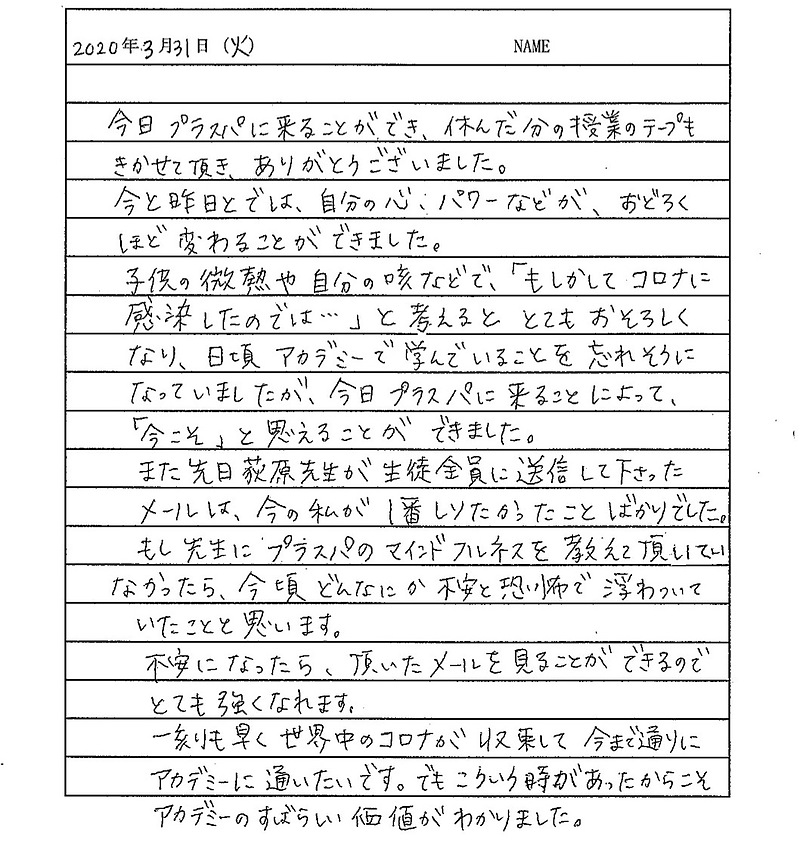 2020年3月31日(火) NAME
今日プラスパに来ることができ、休んだ分の授業のテープも
きかせて頂き、ありがとうございました。
今と昨日とでは、自分の心、パワーなどが、おどろく
ほど変わることができました。
子供の微熱や自分の咳などで、「もしかしてコロナに
感染したのでは…」と考えるととてもおそろしく
なり、日頃アカデミーで学んでいることを忘れそうに
なっていましたが、今日プラスパに来ることによって、
「今こそ」と思えることができました。
また先日荻原先生が生徒全員に送信して下さった
メールは、今の私が1番しりたかったことばかりでした。
もし先生にプラスパのマインドフルネスを教えて頂いてい
なかったら、今頃どんなにか不安と恐怖で浮わついて
いたことと思います。
不安になったら、頂いたメールを見ることができるので
とても強くなれます。
一刻も早く世界中のコロナが収束して今まで通りに
アカデミーに通いたいです。でもこういう時があったからこそ
アカデミーのすばらしい価値がわかりました。